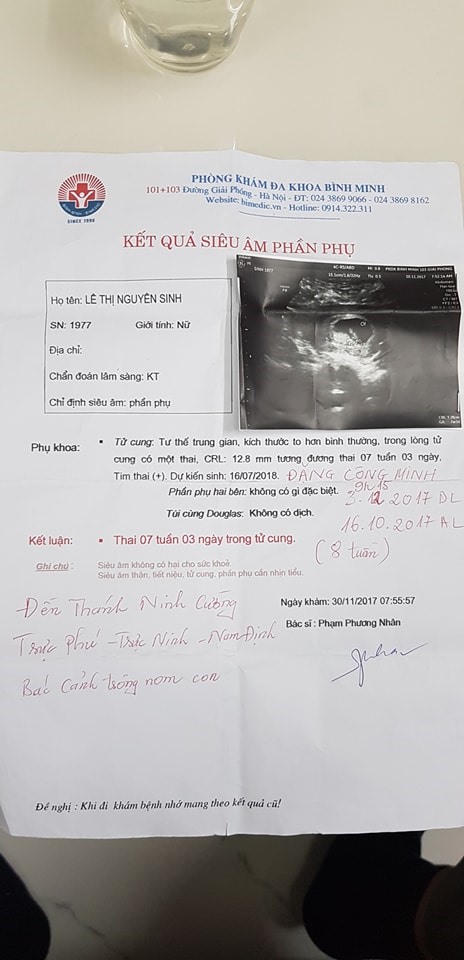 PHÒNG KHÁM ĐA KHOA BÌNH MINH
101+103 Đường Giải Phóng - Hà Nội - ĐT: 024 3869 9066 - 024 3869 8162
Website: bimedic.vn - Hotline: 0914.322.311
SINCE 1996
KẾT QUẢ SIÊU ÂM PHẦN PHỤ
Họ tên: LÊ THỊ NGUYÊN SINH
SN: 1977 Giới tính: Nữ
Địa chỉ:
Chẩn đoán lâm sàng: KT
Chỉ định siêu âm: phần phụ
Phụ khoa: • Tử cung: Tư thế trung gian, kích thước to hơn bình thường, trong lòng tử
cung có một thai, CRL: 12.8 mm tương đương thai 07 tuần 03 ngày,
Tim thai (+). Dự kiến sinh: 16/07/2018. ĐẶNG CÔNG MINH
9h15
Phần phụ hai bên: không có gì đặc biệt. 3.12.2017 DL
Túi cùng Douglas: Không có dịch. 16.10.2017 AL
Kết luận: • Thai 07 tuần 03 ngày trong tử cung. (8 tuần)
Ghi chú: Siêu âm không có hại cho sức khoẻ.
Siêu âm thận, tiết niệu, tử cung, phần phụ cần nhịn tiểu.
Đền Thánh Ninh Cường
Trực Phú - Trực Ninh - Nam Định
Bác Cảnh trông nom con
Ngày khám: 30/11/2017 07:55:57
Bác sĩ : Phạm Phương Nhân
Đề nghị : Khi đi khám bệnh nhớ mang theo kết quả cũ!